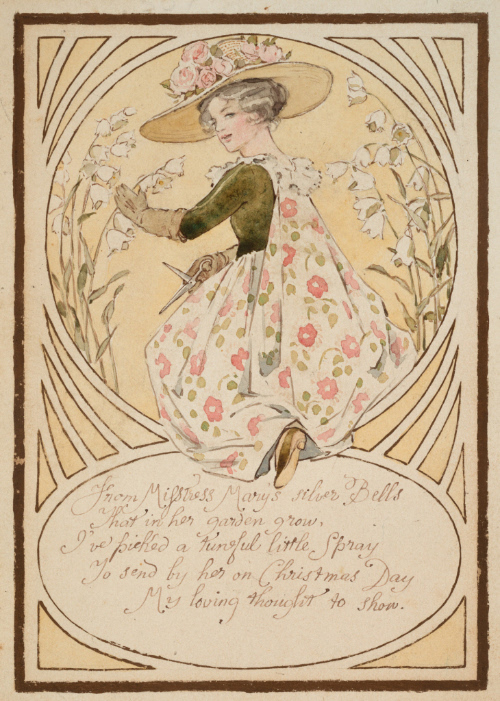 From Misstress Marys silver Bells
That in her garden grow,
I've picked a tuneful little Spray
To send by her on Christmas Day
My loving thought to show.